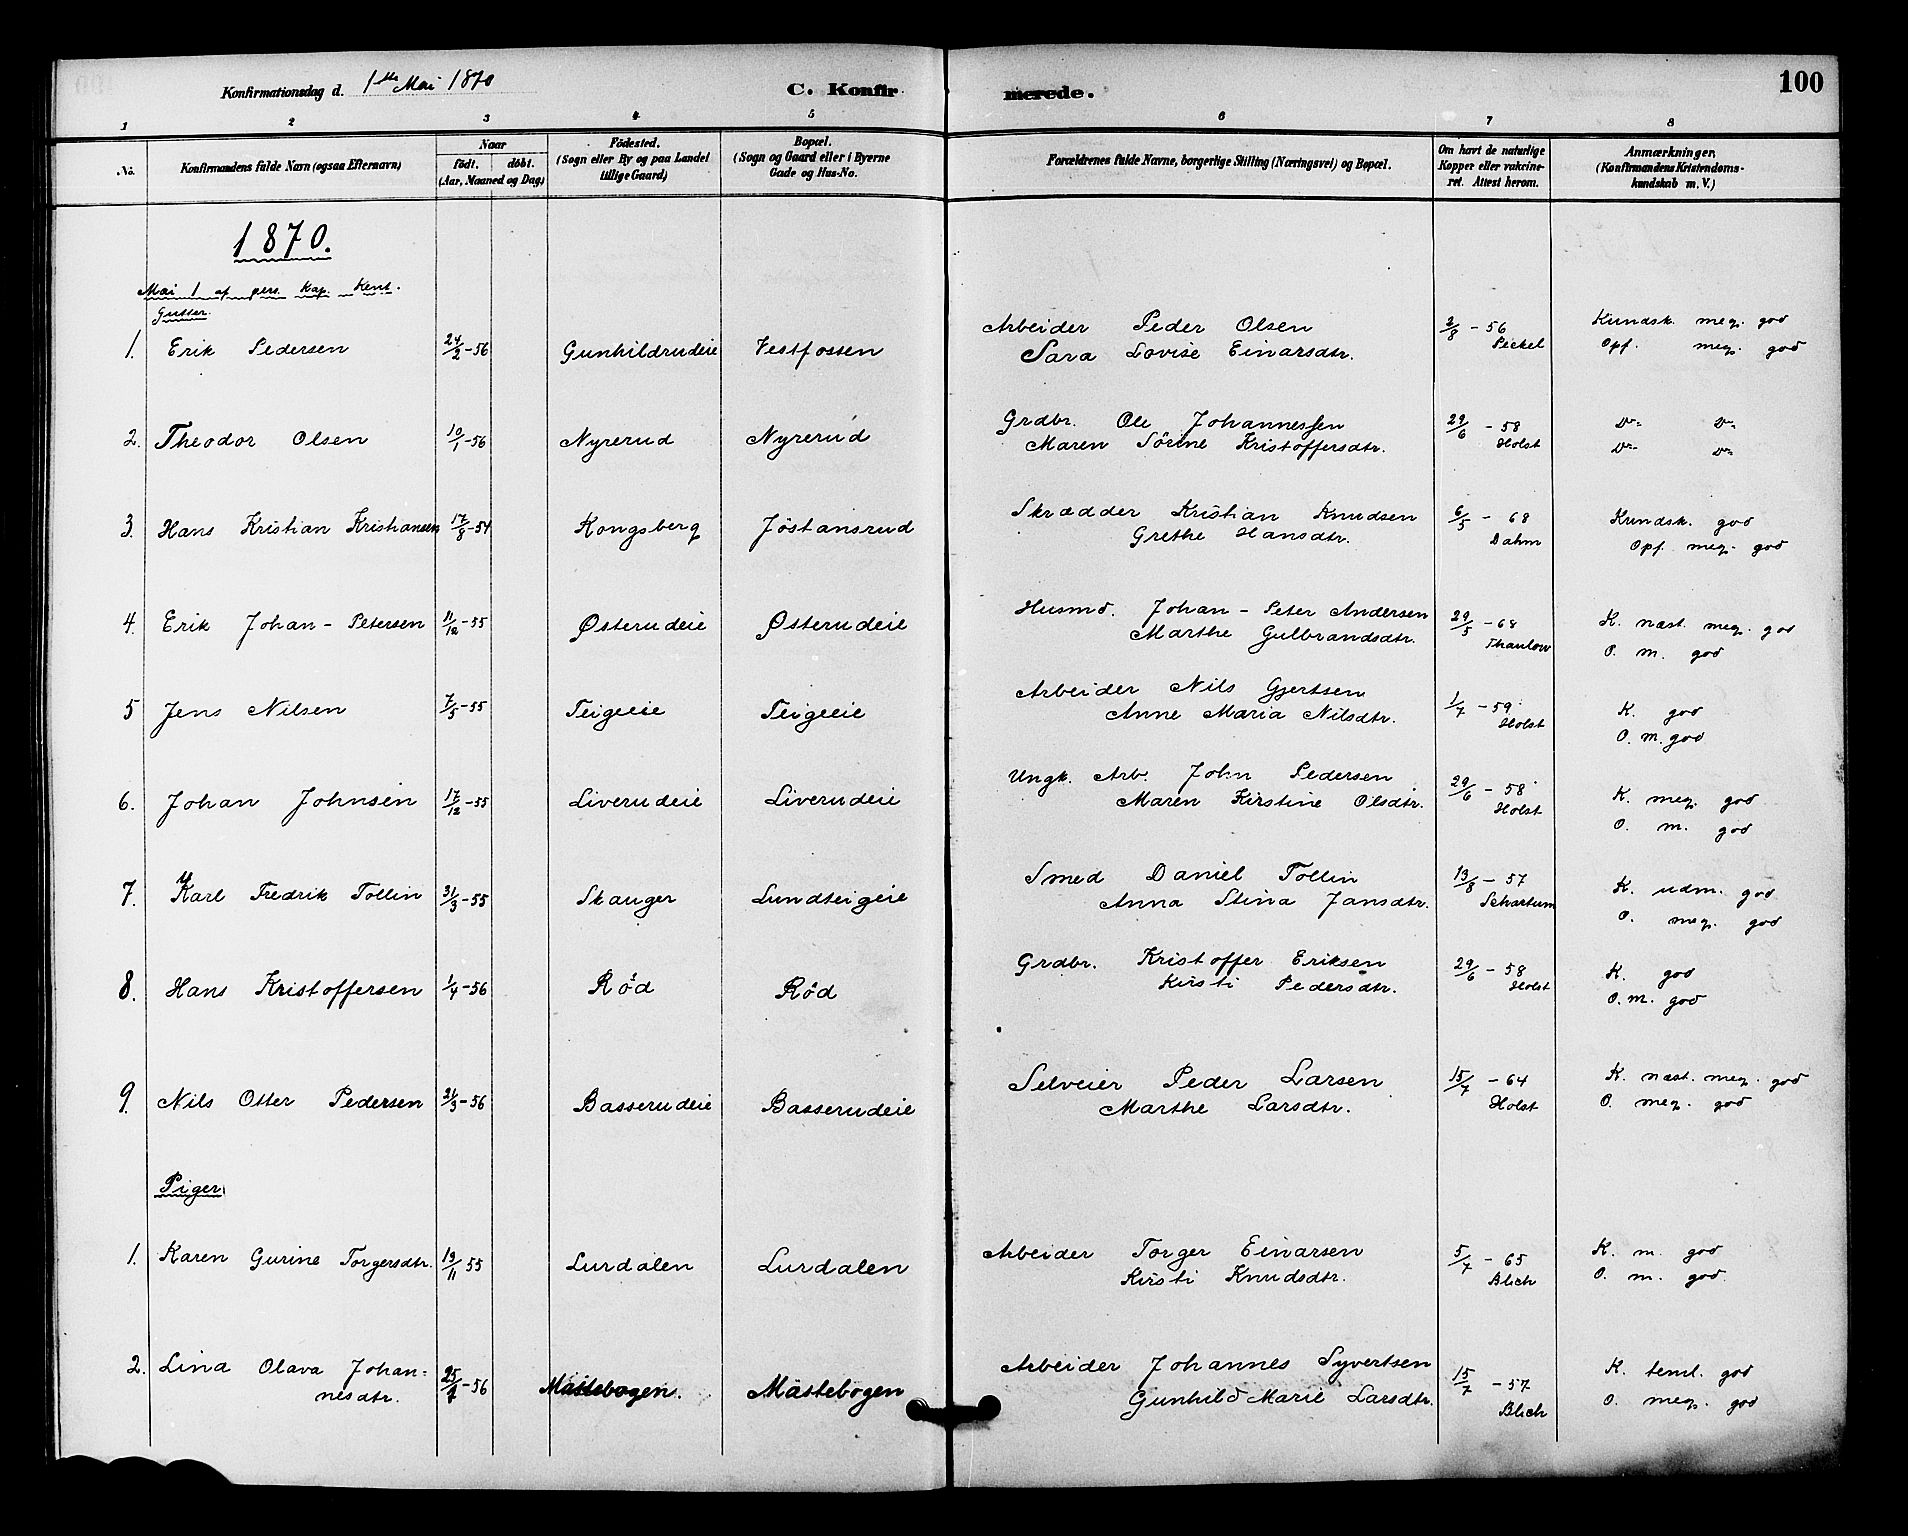 Konfirmationsdag d. 1ste Mai 1870
C. Konfirmerede.
100
1 2 3 4 5 6 7 8
No. Konfirmandens fulde Navn (ogsaa Efternavn)
Naar
født. døbt.
(Aar, Maaned og Dag)
Fødested.
(Sogn eller By og paa Landet
tillige Gaard)
Bopæl.
(Sogn og Gaard eller i Byerne
Gade og Hus-No.
Forældrenes fulde Navne, borgerlige Stilling (Næringsvei) og Bopæl.
Om havt de naturlige
Kopper eller vakcine-
ret. Attest herom.
Anmærkninger,
(Konfirmandens Kristendoms-
kundskab m. V.)
1870.
Mai 1 af pers. Kap. Kent.
Gutter.
1. Erik Pedersen 24/2-56 Gunhildrudeie Vestfossen Arbeider Peder Olsen 3/8-56 Kundsk. meg. god
Sara Lovise Einarsdtr. Peckel Opf. meg. god
2. Theodor Olsen 10/1-56 Nyrerud Nyrerud Grdbr. Ole Johannessen 29/6-58 Do Do
Maren Sörine Kristoffersdtr. Holst Do Do
3. Hans Kristian Kristiansen 17/8-54 Kongsberg Jøstansrud Skrædder Kristian Knudsen 6/5-68 Kundsk. god
Grethe Hansdtr. Dahm Opf. meg. god
4. Erik Johan-Petersen 11/12-55 Østerudeie Østerudeie Husmd. Johan-Peter Andersen 29/5-68 K. næst. meg. god
Marthe Gulbrandsdtr. Thaulow O. m. god
5 Jens Nilsen 7/5-55 Teigeeie Teigeeie Arbeider Nils Gjertsen 1/7-59 K. god
Anne Maria Nilsdtr. Holst O. m. god
6. Johan Johnsen 17/12-55 Liverudeie Liverudeie Ungk. Arb. John Pedersen 29/6-58 K. meg. god
Maren Kirstine Olsdtr. Holst O. m. god
7. Karl Fredrik Tollin 31/3-55 Skauger Lundteigeie Smed Daniel Tollin 13/8-57 K. udm. god
Anna Stina Jansdtr. Schartum O. meg. god
8. Hans Kristoffersen 1/4-56 Rød Rød Grdbr. Kristoffer Eriksen 29/6-58 K. god
Kirsti Pedersdtr. Holst O. m. god
9. Nils Otter Pedersen 21/3-56 Basserudeie Basserudeie Selveier Peder Larsen 15/7-64 K. næst. meg. god
Marthe Larsdtr. Holst O. meg. god
Piger
1. Karen Gurine Torgersdtr. 19/11 55 Lurdalen Lurdalen Arbeider Torger Einarsen 5/7-65 K. m. god
Kirsti Knudsdtr. Blich O. m. god
2. Lina Olava Johan- 25/-56 Mastebogen. Mastebogen Arbeider Johannes Syvertsen 15/7-57 K. teml. god
nesdtr. Gunhild Marie Larsdtr. Blich O. meg. god